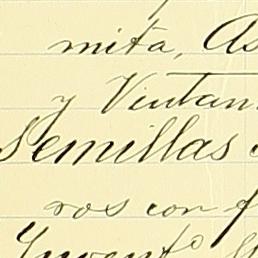 mita, As
y Vintan
Semillas
ros con f
Invento